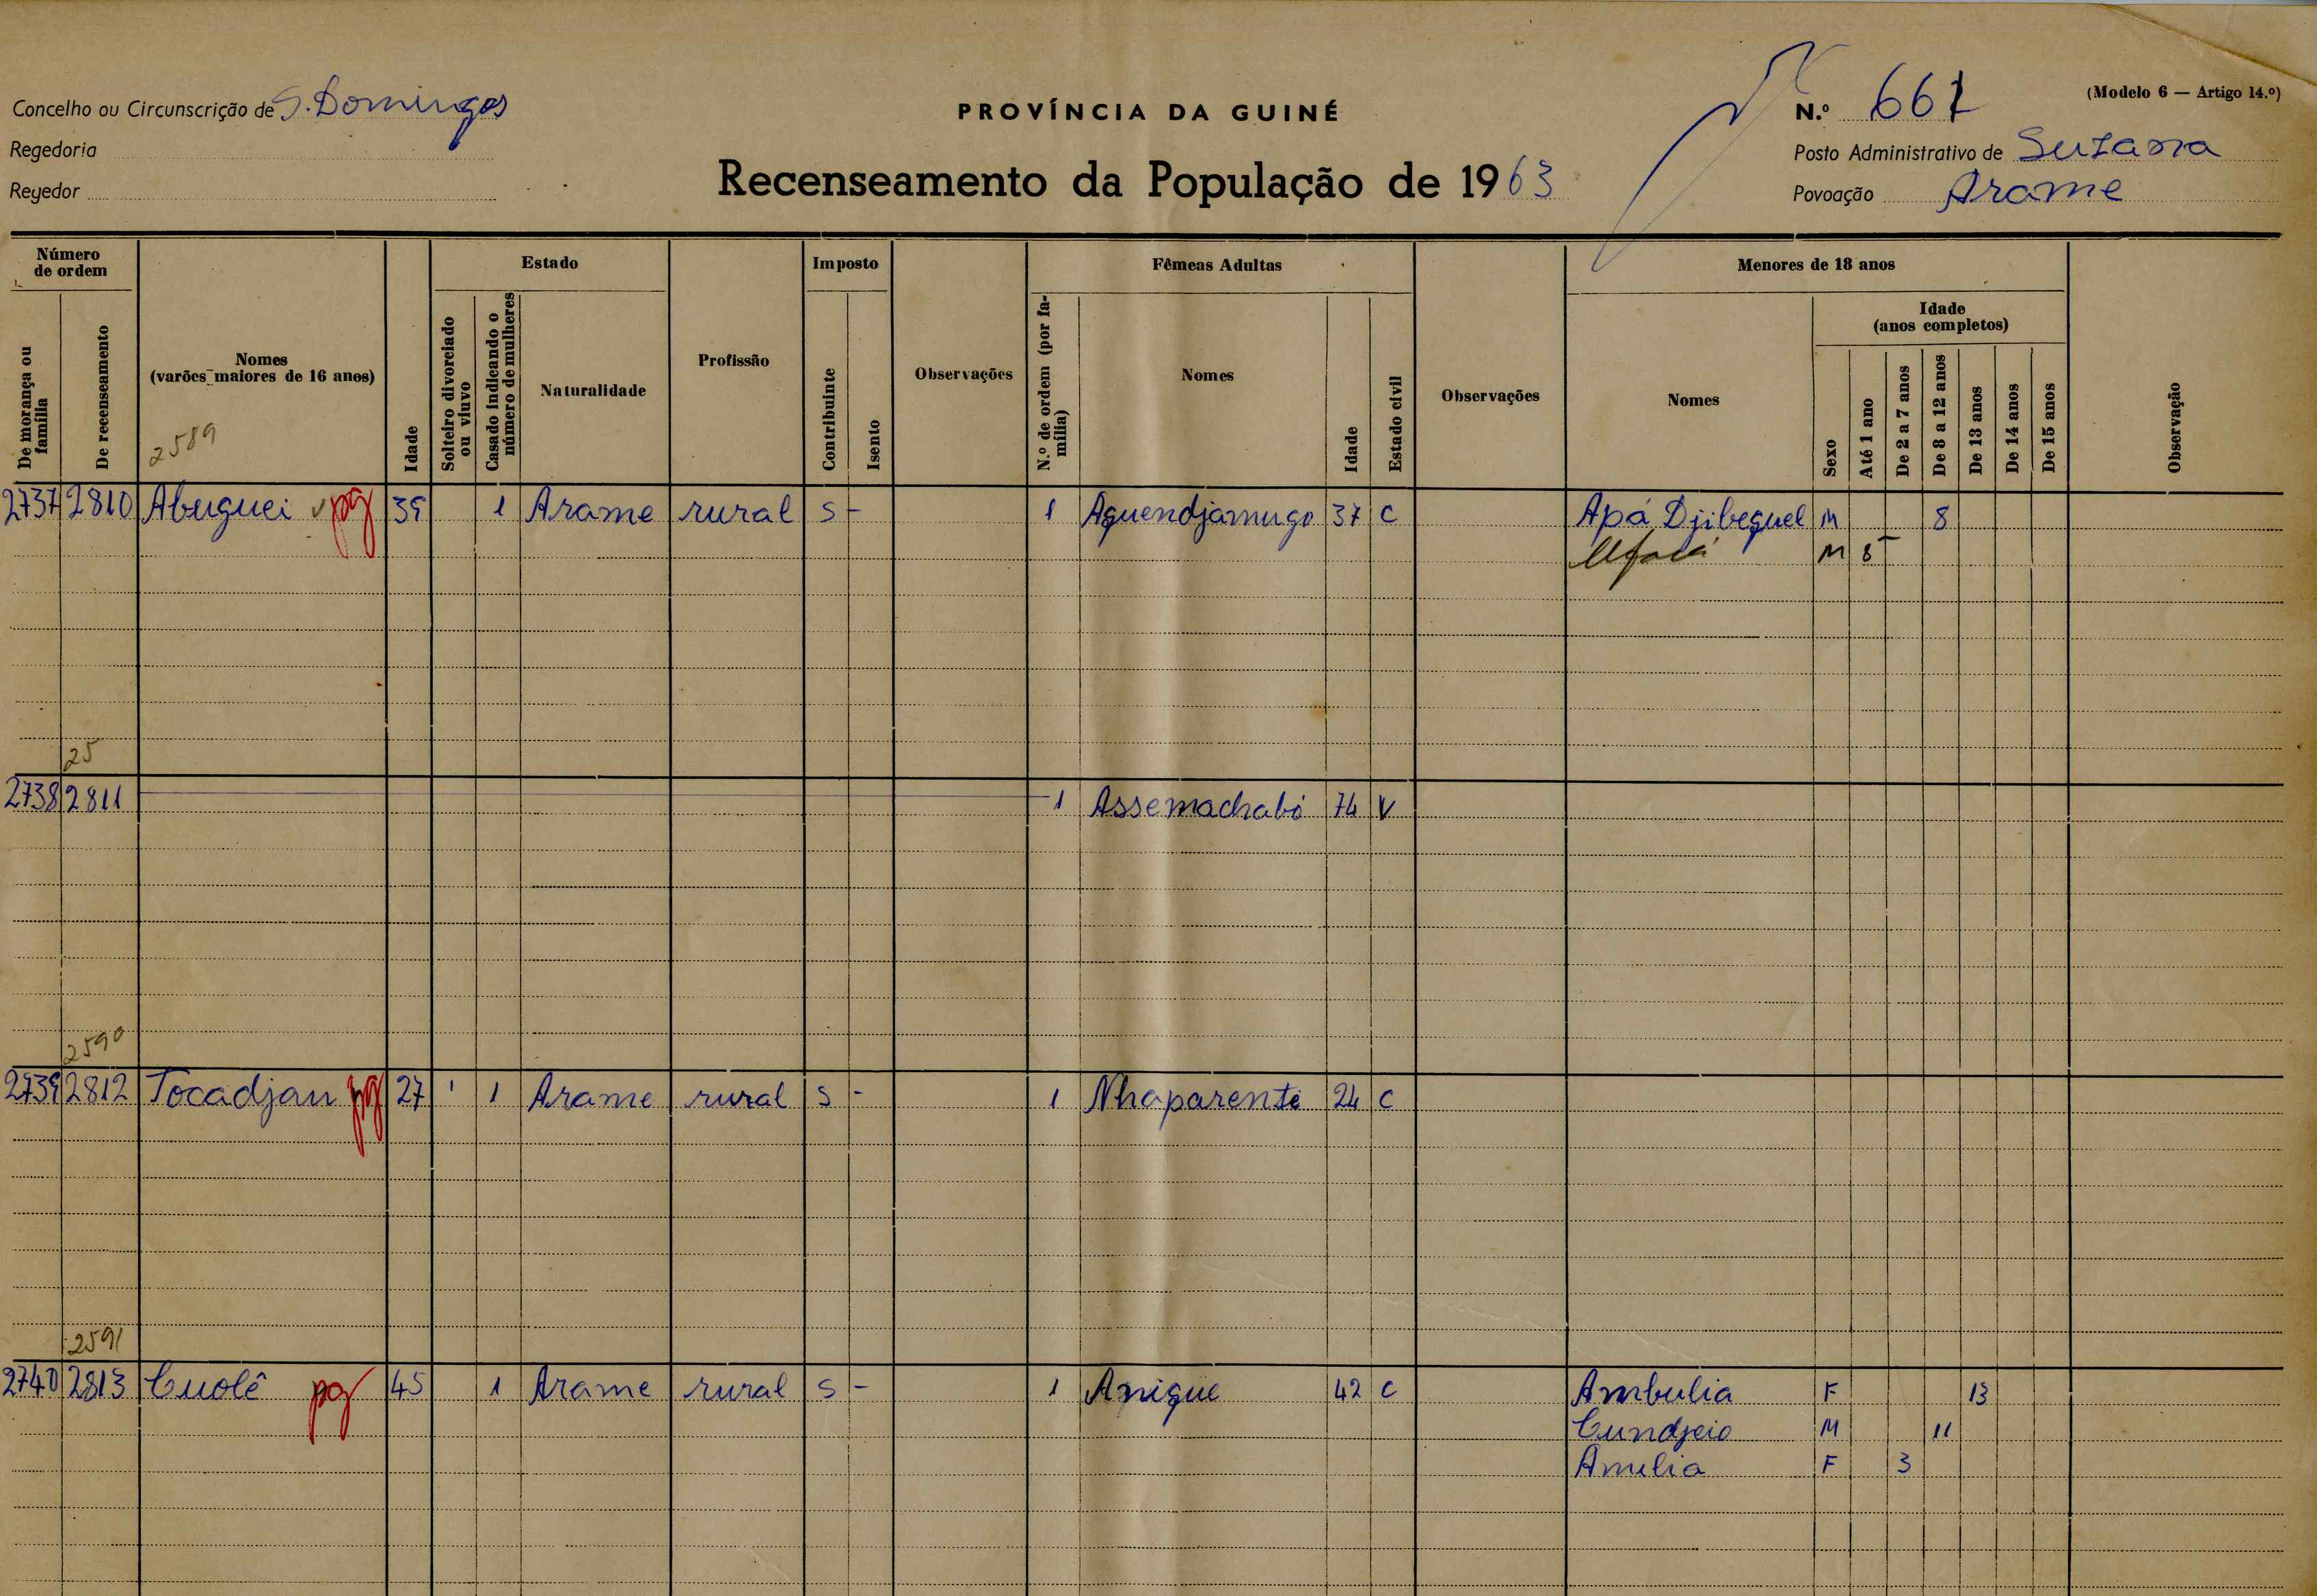 Concelho ou Circunscrição de S. Domingos
Regedoria
Regedor
PROVÍNCIA DA GUINÉ
Recenseamento da População de 1963
(Modelo 6 — Artigo 14.º)
N.º 661
Posto Administrativo de Suzana
Povoação Arame
Número de ordem
De morança ou família
De recenseamento
Nomes (varões maiores de 16 anos)
2589
Idade
Estado
Solteiro divorciado ou viuvo
Casado indicando o número de mulheres
Naturalidade
Profissão
Imposto
Contribuinte
Isento
Observações
Fêmeas Adultas
N.º de ordem (por família)
Nomes
Idade
Estado civil
Observações
Menores de 18 anos
Nomes
Sexo
Idade (anos completos)
Até 1 ano
De 2 a 7 anos
De 8 a 12 anos
De 13 anos
De 14 anos
De 15 anos
Observação
2737 2810 Abuguei pg 39 1 Arame rural S - 1 Aquendjamugo 37 C Apá Djibequel M 8
M 8
25
2738 2811 1 Assemachabó 74 V
2590
2739 2812 Tocadjau pg 27 1 1 Arame rural S - 1 Nhaparente 24 C
2591
2740 2813 Cuolê pg 45 1 Arame rural S - 1 Anique 42 C Ambulia F 13
Cundjeio M 11
Amelia F 3